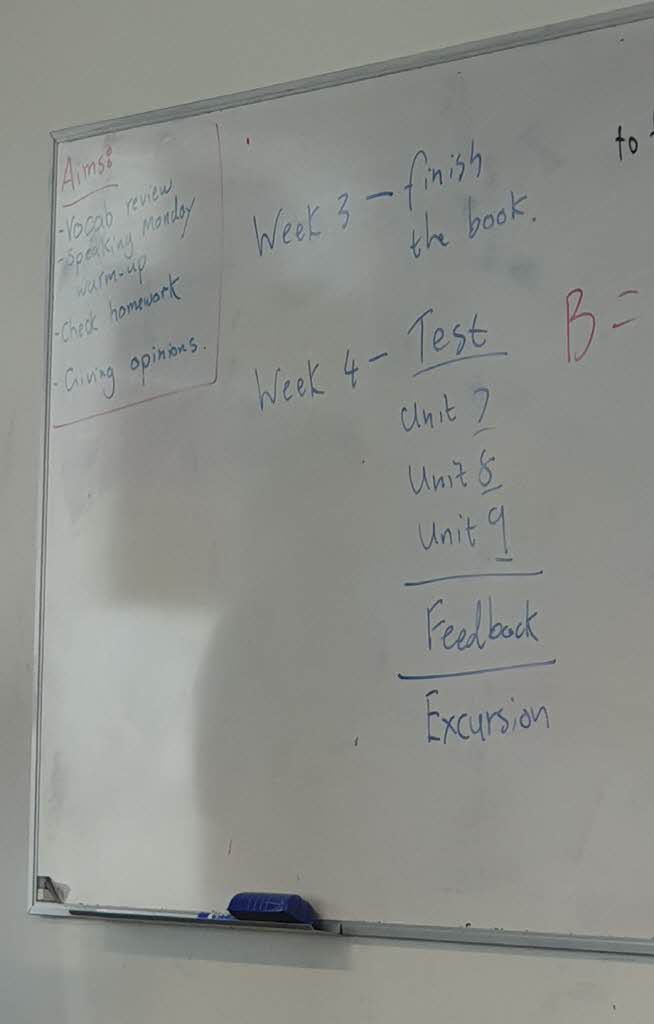 Aims:
-Vocab review
-Speaking Monday
warm-up
-Check homework
-Giving opinions.
Week 3 - finish
the book.
Week 4 - Test
Unit 7
Unit 8
Unit 9
Feedback
Excursion
to
B =